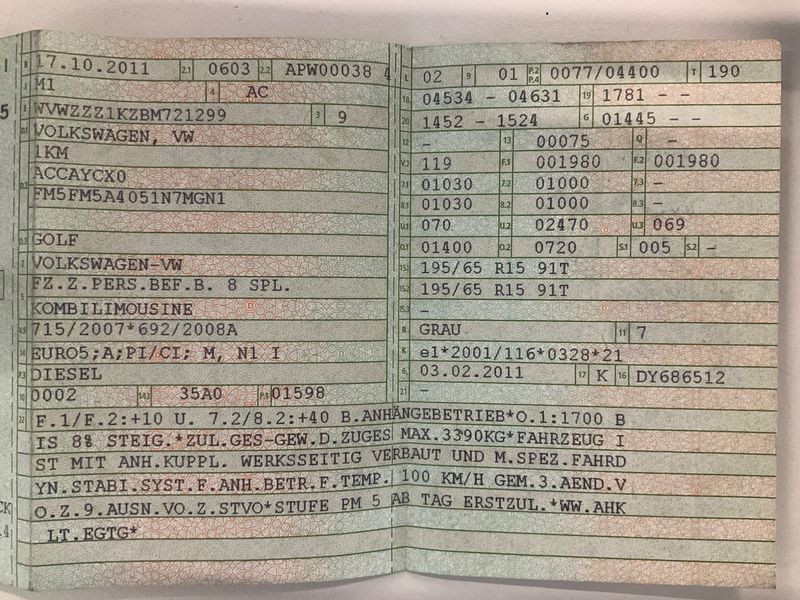 B 17.10.2011 2.1 0603 2.2 APW00038 4
J M1 4 AC
E WVWZZZ1KZBM721299 3 9
D.1 VOLKSWAGEN, VW
1KM
D.2 ACCAYCX0
FM5FM5A4051N7MGN1
D.3 GOLF
2 VOLKSWAGEN-VW
5 FZ.Z.PERS.BEF.B. 8 SPL.
KOMBILIMOUSINE
V.9 715/2007*692/2008A
14 EURO5;A;PI/CI; M, N1 I
P.3 DIESEL
10 0002 14.1 35A0 P.1 01598
L 02 9 01 P.2 P.4 0077/04400 T 190
18 04534 - 04631 19 1781 - -
20 1452 - 1524 G 01445 - -
- 13 00075 Q -
V.7 119 F.1 001980 F.2 001980
7.1 01030 7.2 01000 7.3 -
8.1 01030 8.2 01000 8.3 -
U.1 070 U.2 02470 U.3 069
O.1 01400 O.2 0720 S.1 005 S.2 -
15.1 195/65 R15 91T
15.2 195/65 R15 91T
15.3 -
R GRAU 11 7
K e1*2001/116*0328*21
6 03.02.2011 17 K 16 DY686512
21 -
22 F.1/F.2:+10 U. 7.2/8.2:+40 B.ANHÄNGEBETRIEB*O.1:1700 B
IS 8% STEIG.*ZUL.GES-GEW.D.ZUGES MAX.3390KG*FAHRZEUG I
ST MIT ANH.KUPPL. WERKSSEITIG VERBAUT UND M.SPEZ.FAHRD
YN.STABI.SYST.F.ANH.BETR.F.TEMP. 100 KM/H GEM.3.AEND.V
O.Z.9.AUSN.VO.Z.STVO*STUFE PM 5 AB TAG ERSTZUL.*WW.AHK
LT.EGTG*